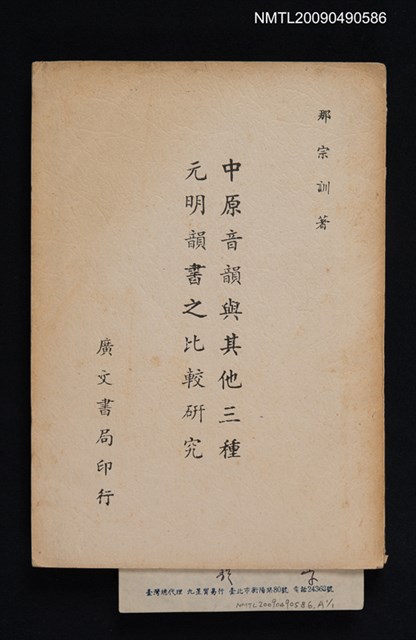 NMTL20090490586
那宗訓著
中原音韻與其他三種
元明韻書之比較研究
廣文書局印行
臺灣總代理 九星貿易行 臺北市衡陽路80號 電話24362號
NMTL20090490586.A1/1